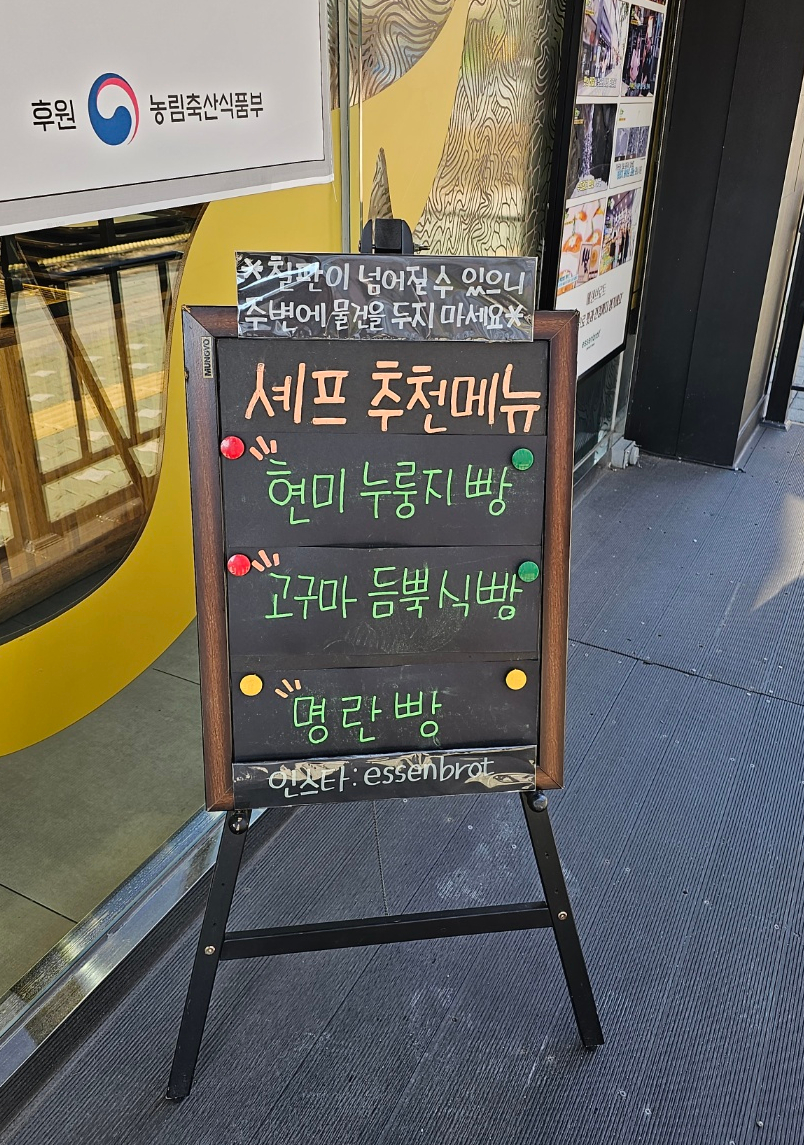 후원 농림축산식품부
*철판이 넘어질 수 있으니
주변에 물건을 두지 마세요*
MUNGYO
셰프 추천메뉴
현미 누룽지 빵
고구마 듬뿍 식빵
명란빵
인스타: essenbrot